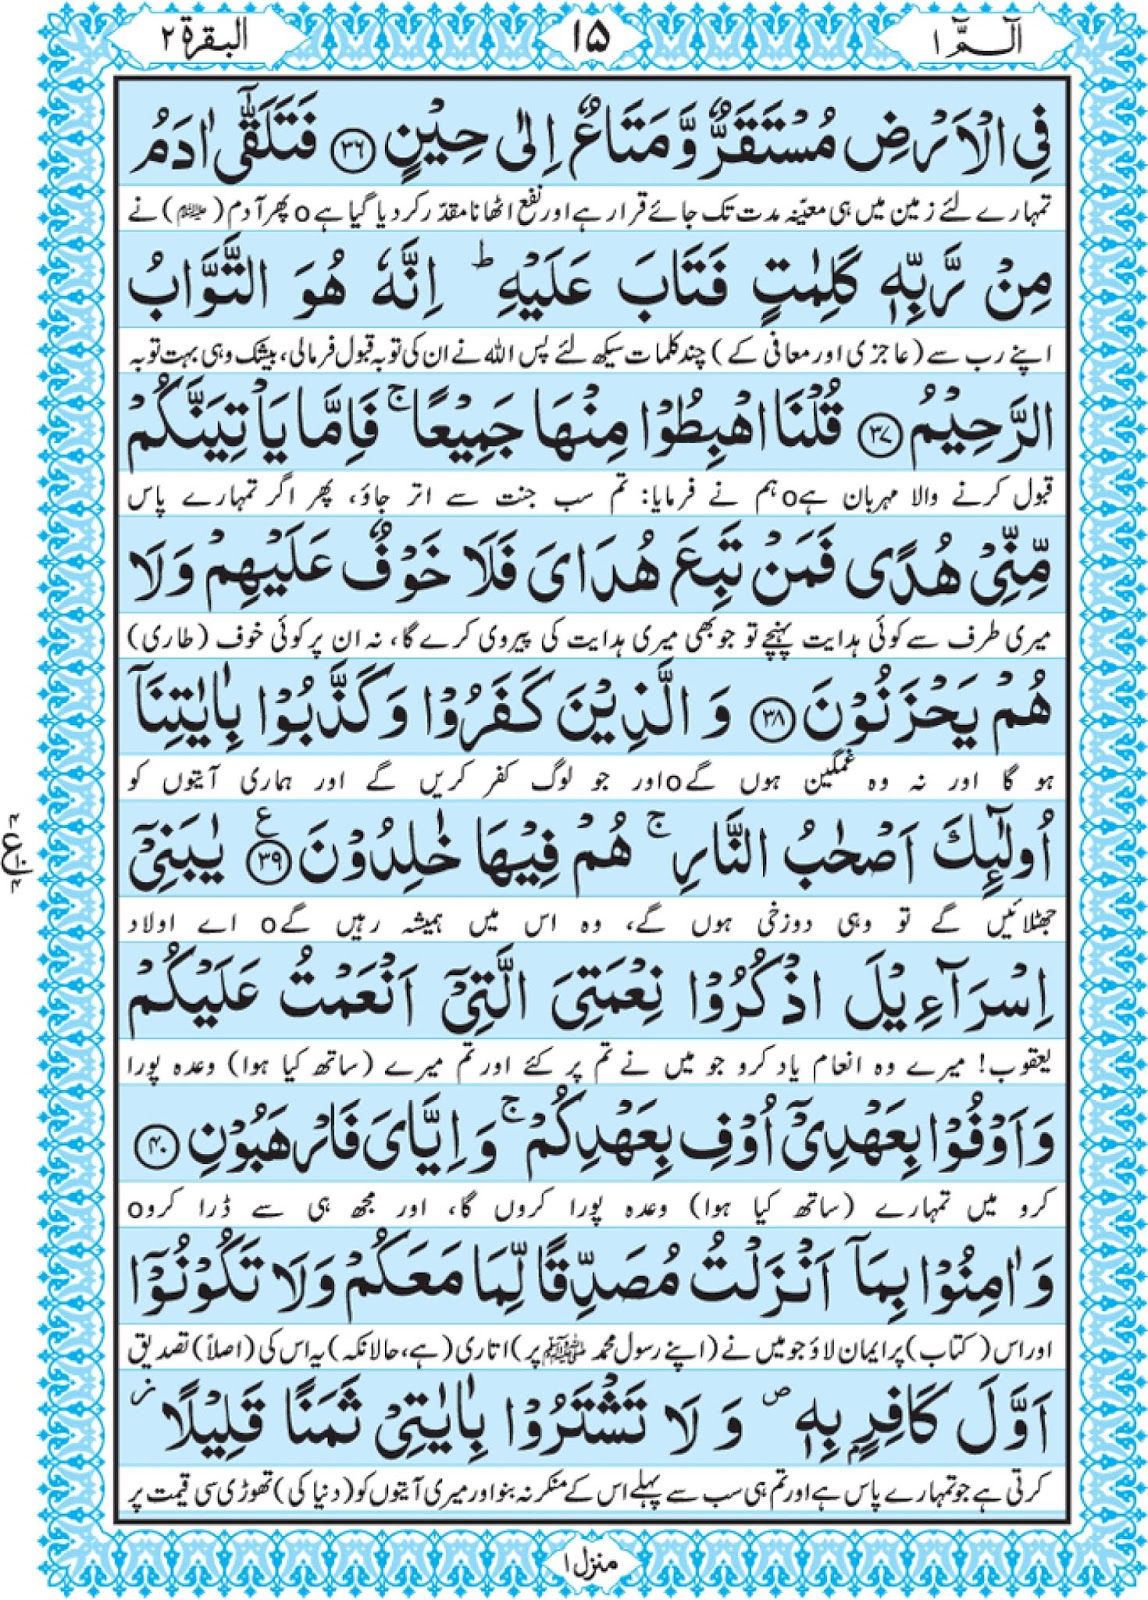 الٓمّٓ ١
١٥
البقرة ٢
فِي الْاَرْضِ مُسْتَقَرٌّ وَّ مَتَاعٌ اِلٰى حِيْنٍ ﴿۳۶﴾ فَتَلَقّٰۤى اٰدَمُ
تمہارے لئے زمین میں ہی معیّنہ مدت تک جائے قرار ہے اور نفع اٹھانا مقدّر کر دیا گیا ہےo پھر آدم (علیہ السلام) نے
مِنْ رَّبِّهٖ كَلِمٰتٍ فَتَابَ عَلَيْهِ ؕ اِنَّهٗ هُوَ التَّوَّابُ
اپنے رب سے (عاجزی اور معافی کے) چند کلمات سیکھ لئے پس اللہ نے ان کی توبہ قبول فرما لی، بیشک وہی بہت توبہ
الرَّحِيْمُ ﴿۳۷﴾ قُلْنَا اهْبِطُوْا مِنْهَا جَمِيْعًا ۚ فَاِمَّا يَاْتِيَنَّكُمْ
قبول کرنے والا مہربان ہےo ہم نے فرمایا: تم سب جنت سے اتر جاؤ، پھر اگر تمہارے پاس
مِّنِّيْ هُدًى فَمَنْ تَبِعَ هُدَايَ فَلَا خَوْفٌ عَلَيْهِمْ وَلَا
میری طرف سے کوئی ہدایت پہنچے تو جو بھی میری ہدایت کی پیروی کرے گا، نہ ان پر کوئی خوف (طاری)
هُمْ يَحْزَنُوْنَ ﴿۳۸﴾ وَ الَّذِيْنَ كَفَرُوْا وَ كَذَّبُوْا بِاٰيٰتِنَاۤ
ہو گا اور نہ وہ غمگین ہوں گےo اور جو لوگ کفر کریں گے اور ہماری آیتوں کو
اُولٰٓئِكَ اَصْحٰبُ النَّارِ ۚ هُمْ فِيْهَا خٰلِدُوْنَ ﴿۳۹﴾ ع يٰبَنِيْۤ
جھٹلائیں گے تو وہی دوزخی ہوں گے، وہ اس میں ہمیشہ رہیں گےo اے اولاد
اِسْرَآءِيْلَ اذْكُرُوْا نِعْمَتِيَ الَّتِيْۤ اَنْعَمْتُ عَلَيْكُمْ
یعقوب! میرے وہ انعام یاد کرو جو میں نے تم پر کئے اور تم میرے (ساتھ کیا ہوا) وعدہ پورا
وَ اَوْفُوْا بِعَهْدِيْۤ اُوْفِ بِعَهْدِكُمْ ۚ وَ اِيَّايَ فَارْهَبُوْنِ ﴿۴۰﴾
کرو میں تمہارے (ساتھ کیا ہوا) وعدہ پورا کروں گا، اور مجھ ہی سے ڈرا کروo
وَ اٰمِنُوْا بِمَاۤ اَنْزَلْتُ مُصَدِّقًا لِّمَا مَعَكُمْ وَلَا تَكُوْنُوْۤا
اور اس (کتاب) پر ایمان لاؤ جو میں نے (اپنے رسول محمد ﷺ پر) اتاری (ہے، حالانکہ) یہ اس کی (اصلاً) تصدیق
اَوَّلَ كَافِرٍۭ بِهٖ ۪ وَ لَا تَشْتَرُوْا بِاٰيٰتِيْ ثَمَنًا قَلِيْلًا ؗ
کرتی ہے جو تمہارے پاس ہے اور تم ہی سب سے پہلے اس کے منکر نہ بنو اور میری آیتوں کو (دنیا کی) تھوڑی سی قیمت پر
منزل ١